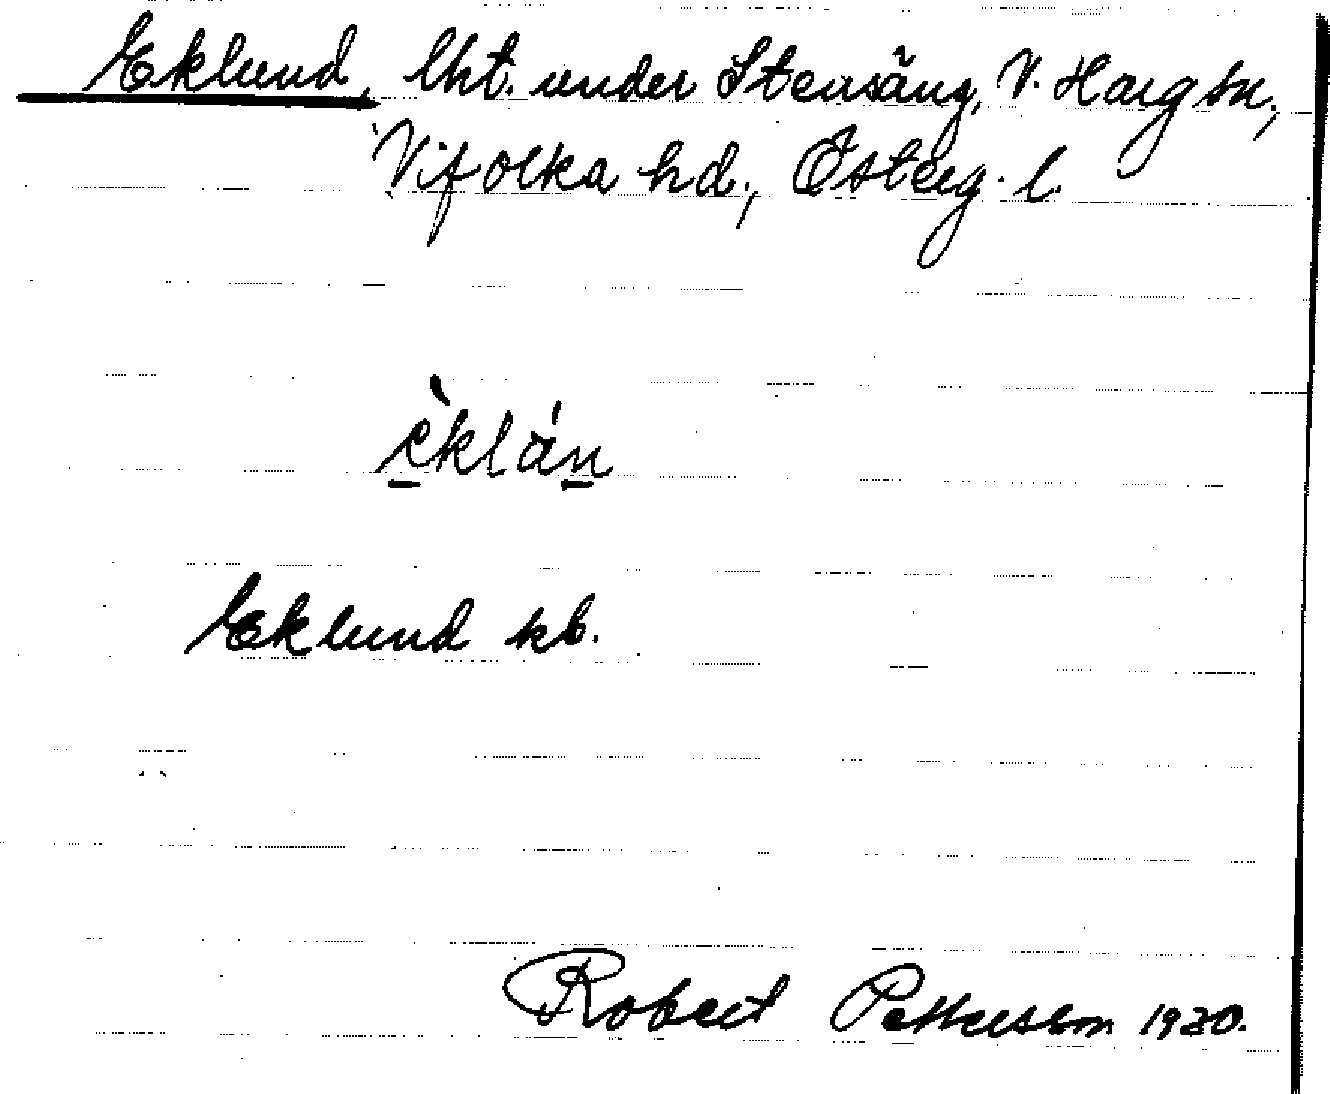 Eklund, lht. under Stensäng, V. Harg sn,
Vifolka hd., Österg. l.
èklán
Eklund kb.
Robert Pettersson 1930.